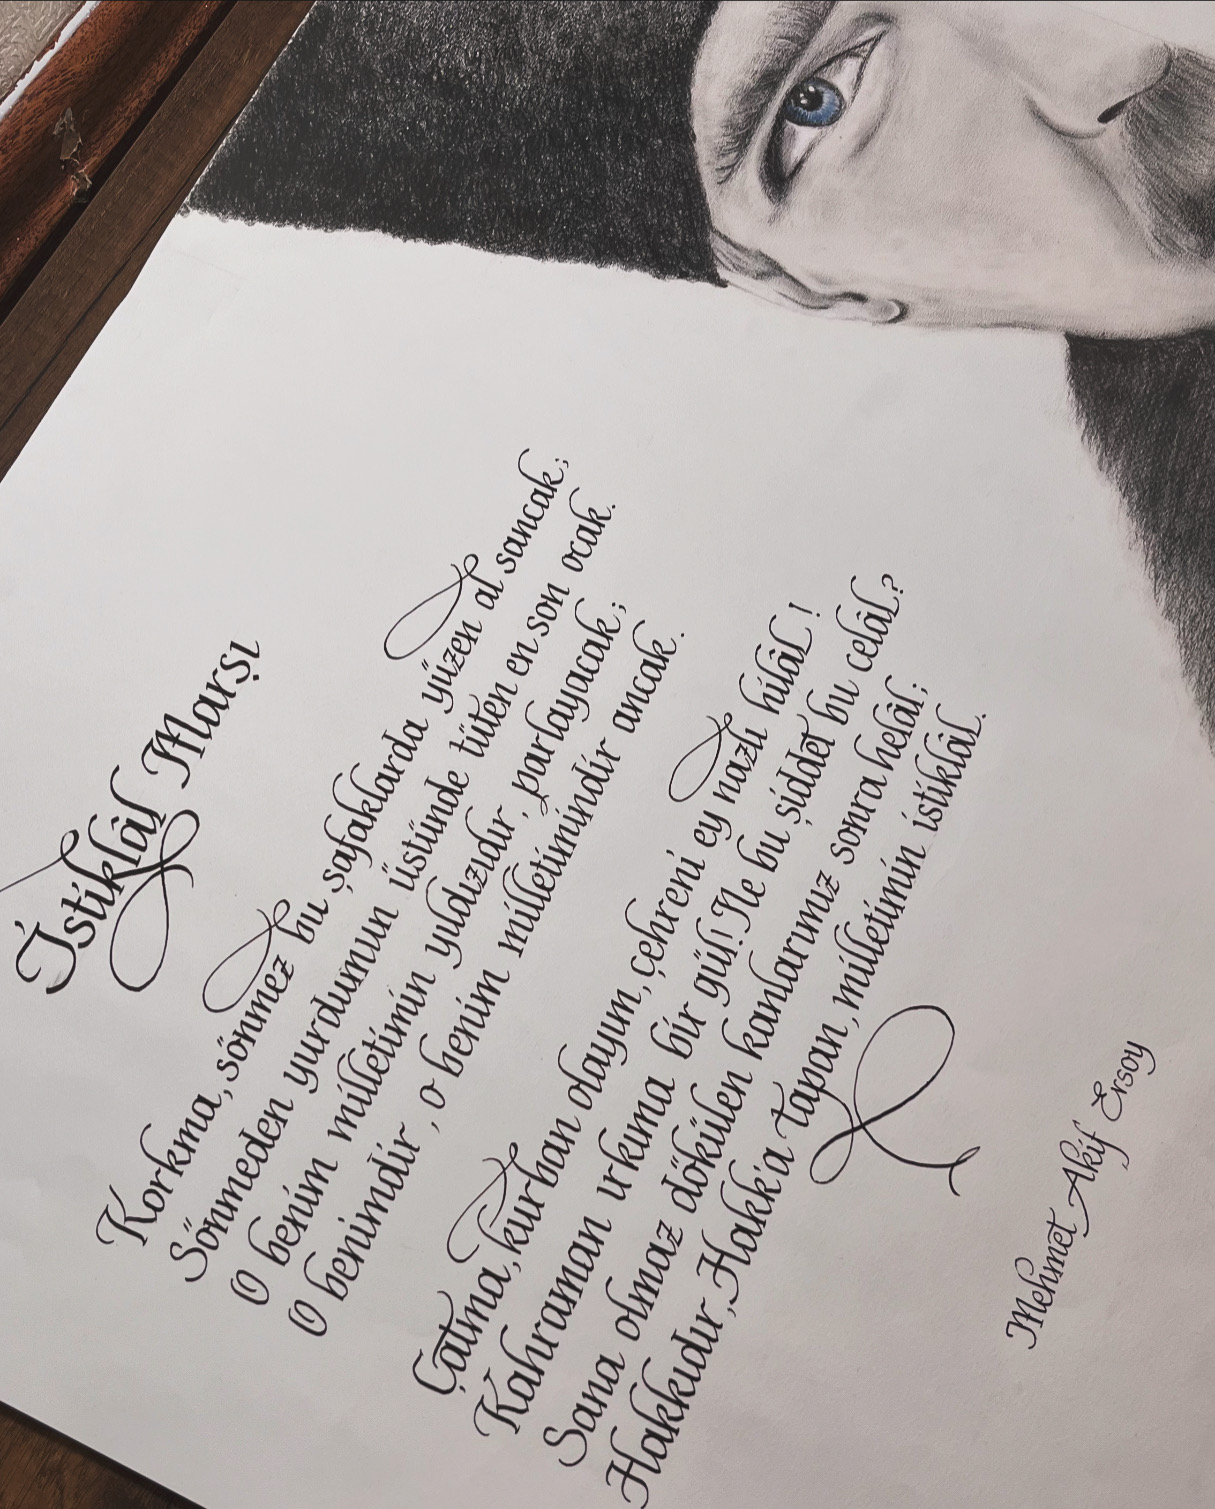 İstiklâl Marşı
Korkma, sönmez bu şafaklarda yüzen al sancak;
Sönmeden yurdumun üstünde tüten en son ocak.
O benim milletimin yıldızıdır, parlayacak;
O benimdir, o benim milletimindir ancak.
Çatma, kurban olayım, çehreni ey nazlı hilâl!
Kahraman ırkıma bir gül! Ne bu şiddet bu celâl?
Sana olmaz dökülen kanlarımız sonra helâl;
Hakkıdır, Hakk'a tapan, milletimin istiklâl.
Mehmet Akif Ersoy